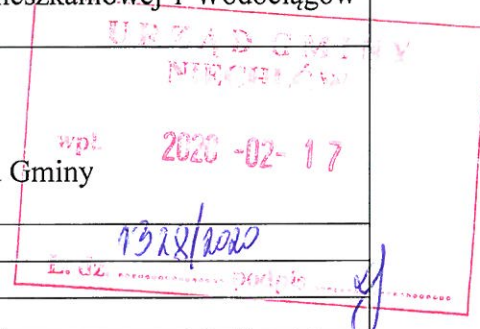 mieszkaniowej i wodociągów
URZĄD GMINY
NIECHLÓW
wpł. 2020 -02- 17
Gminy
1328/2020
L. dz. .................... podpis ....................